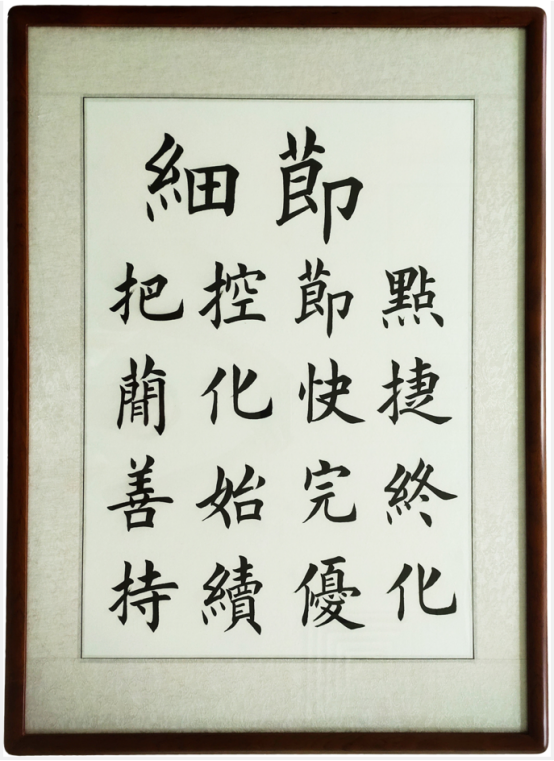 細節
把控節點
蕳化快捷
善始完終
持續優化